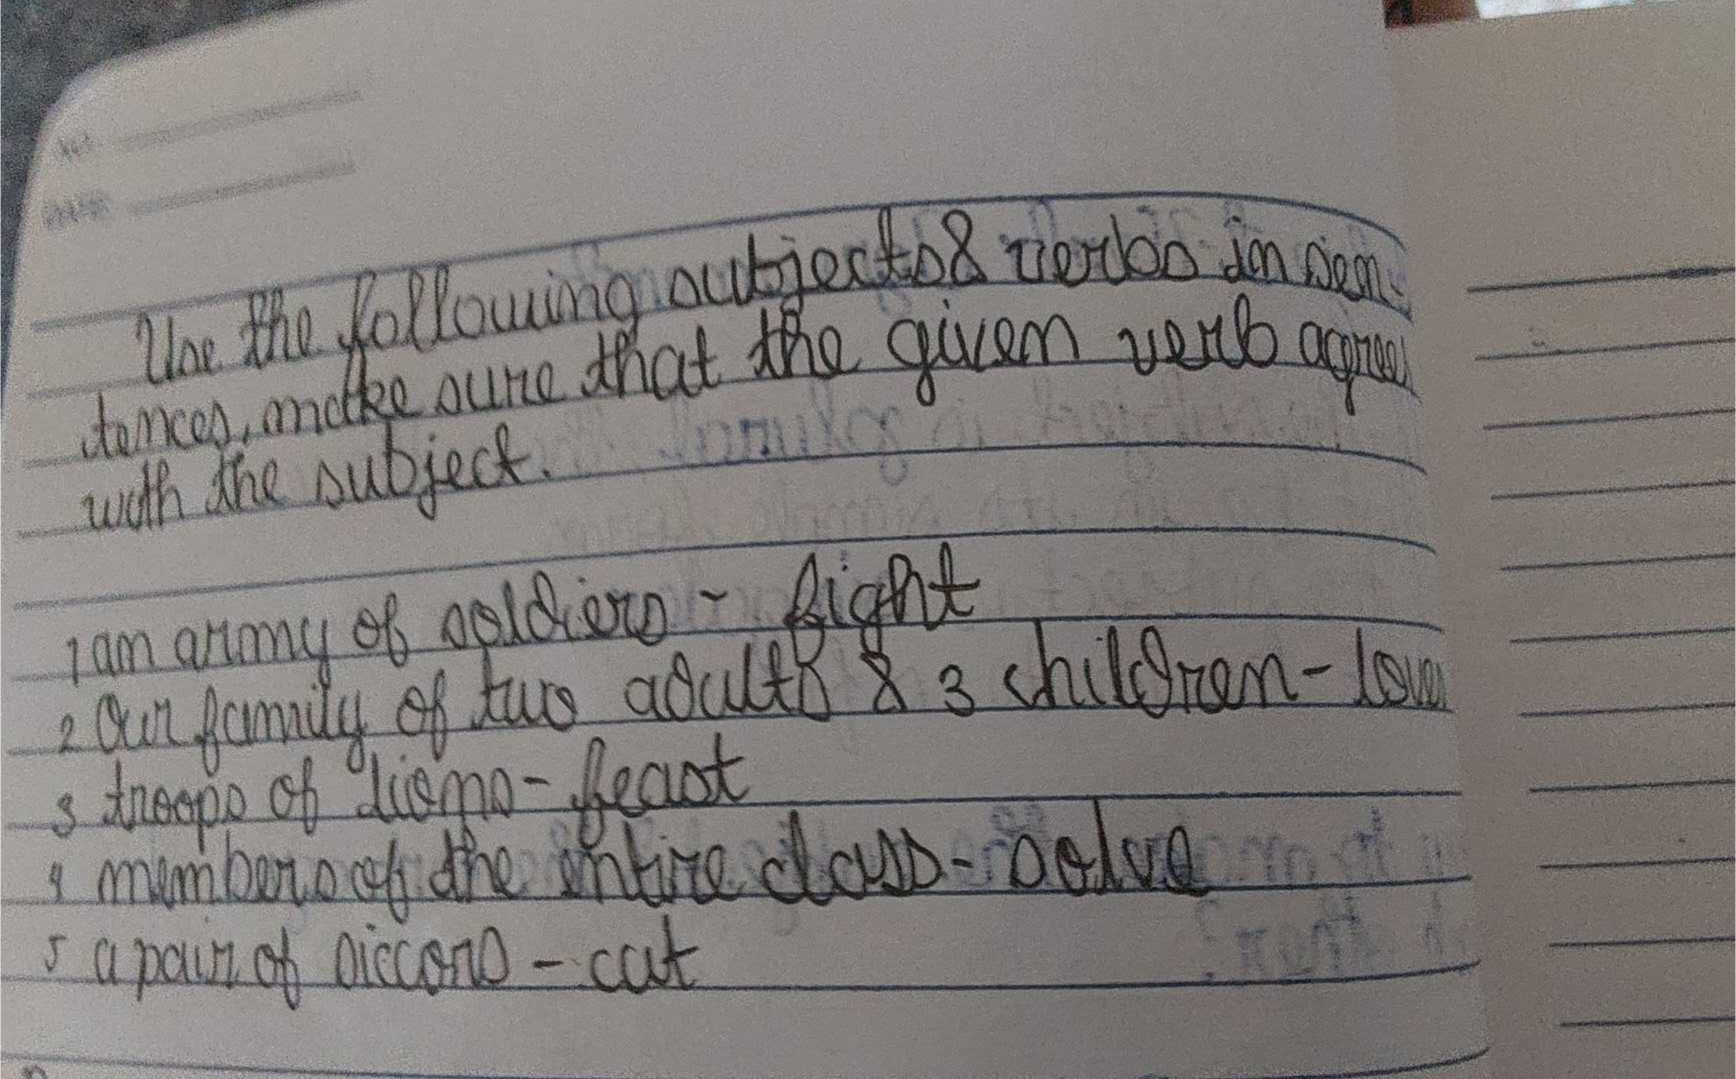 Use the following subjects & verbs in sen-
tences, make sure that the given verb agrees
with the subject.
1 an army of soldiers - fight
2 Our family of two adults & 3 children - love
3 troops of lions - feast
4 members of the entire class - solve
5 a pair of siccors - cut